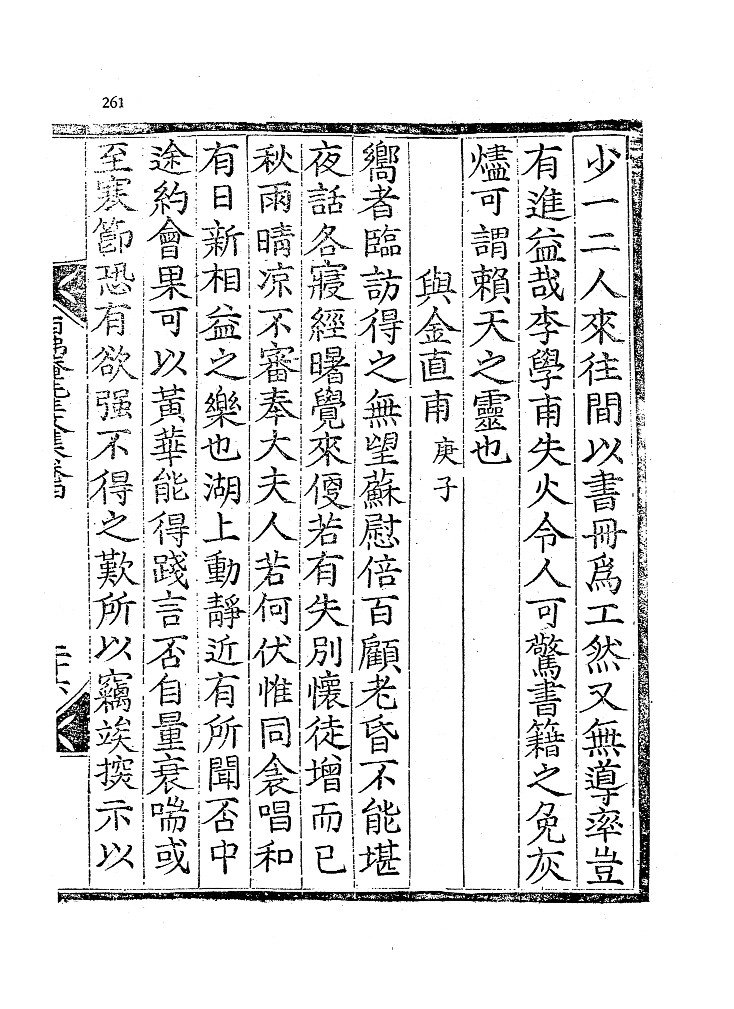 261
少一二人來往間以書冊爲工然又無導率豈
有進益哉李學甫失火令人可驚書籍之免灰
燼可謂賴天之靈也
與金直甫 庚子
嚮者臨訪得之無望蘇慰倍百顧老昏不能堪
夜話各寢經曙覺來傻若有失別懷徒增而已
秋雨晴凉不審奉大夫人若何伏惟同衾唱和
有日新相益之樂也湖上動靜近有所聞否中
途約會果可以黃華能得踐言否自量衰喘或
至寒節恐有欲强不得之歎所以竊竢摐示以